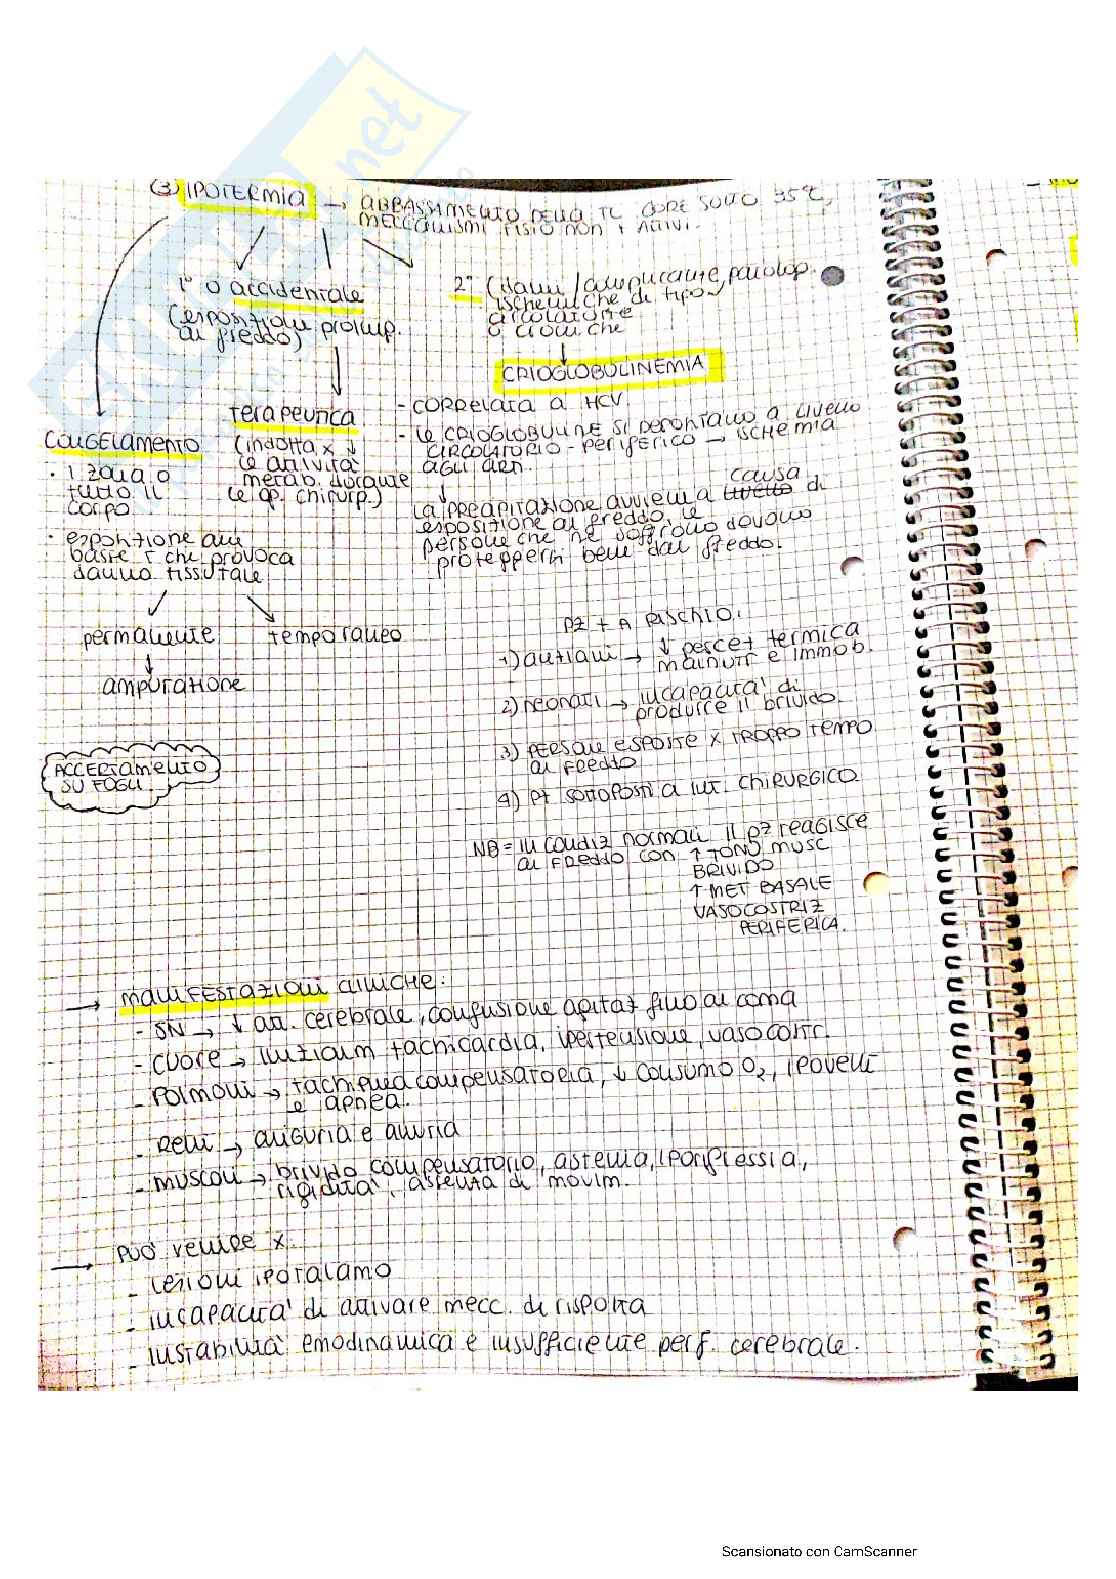 (3) IPOTERMIA → ABBASSAMENTO DELLA TC CORE SOTTO 35°C,
MECCANISMI FISIO NON + ATTIVI.
1° o accidentale
(esposizioni prolung.
al freddo)
2° (danni
ischemiche di tipo
circolatorie
o croniche
CRIOGLOBULINEMIA
- CORRELATA A HCV
- le CRIOGLOBULINE SI depositano a livello
CIRCOLATORIO - PERIFERICO → ISCHEMIA
AGLI ARTI.
La PRECIPITAZIONE AVVIENE A livello causa di
esposizione al freddo, le
persone che ne soffrono devono
proteggersi bene dal freddo.
terapeutica
(indotta x ↓
le attività
metab. durante
le op. chirurg.)
CONGELAMENTO
• 1 zona o
tutto il
corpo
• esposizione alle
basse T che provoca
danno tissutale
permanente
temporaneo
amputazione
ACCERTAMENTO
SU FOGLI
PZ + A RISCHIO:
1) anziani → ↓ percez termica
malnutr e immob.
2) neonati → incapacità di
produrre il brivido.
3) PERSONE ESPOSTE X TROPPO TEMPO
al FREDDO
4) PZ SOTTOPOSTI A INT. CHIRURGICO
NB = in condiz normali il pz reagisce
al FREDDO con ↑ TONO MUSC
BRIVIDO
↑ MET BASALE
VASOCOSTRIZ
PERIFERICA.
→ MANIFESTAZIONI CLINICHE:
- SN → ↓ att. cerebrale, confusione agitaz fino al coma
- CUORE → inizialm tachicardia, ipertensione, vasocostr.
- POLMONI → tachipnea compensatoria, ↓ consumo O2, ipoventi
e apnea.
- RENI → oliguria e anuria
- MUSCOLI → brivido compensatorio, astenia, iporiflessia,
rigidità, assenza di movim.
→ PUÒ VENIRE X:
- lesioni IPOTALAMO
- incapacità di attivare mecc. di risposta
- instabilità emodinamica e insufficiente perf. cerebrale.
Scansionato con CamScanner